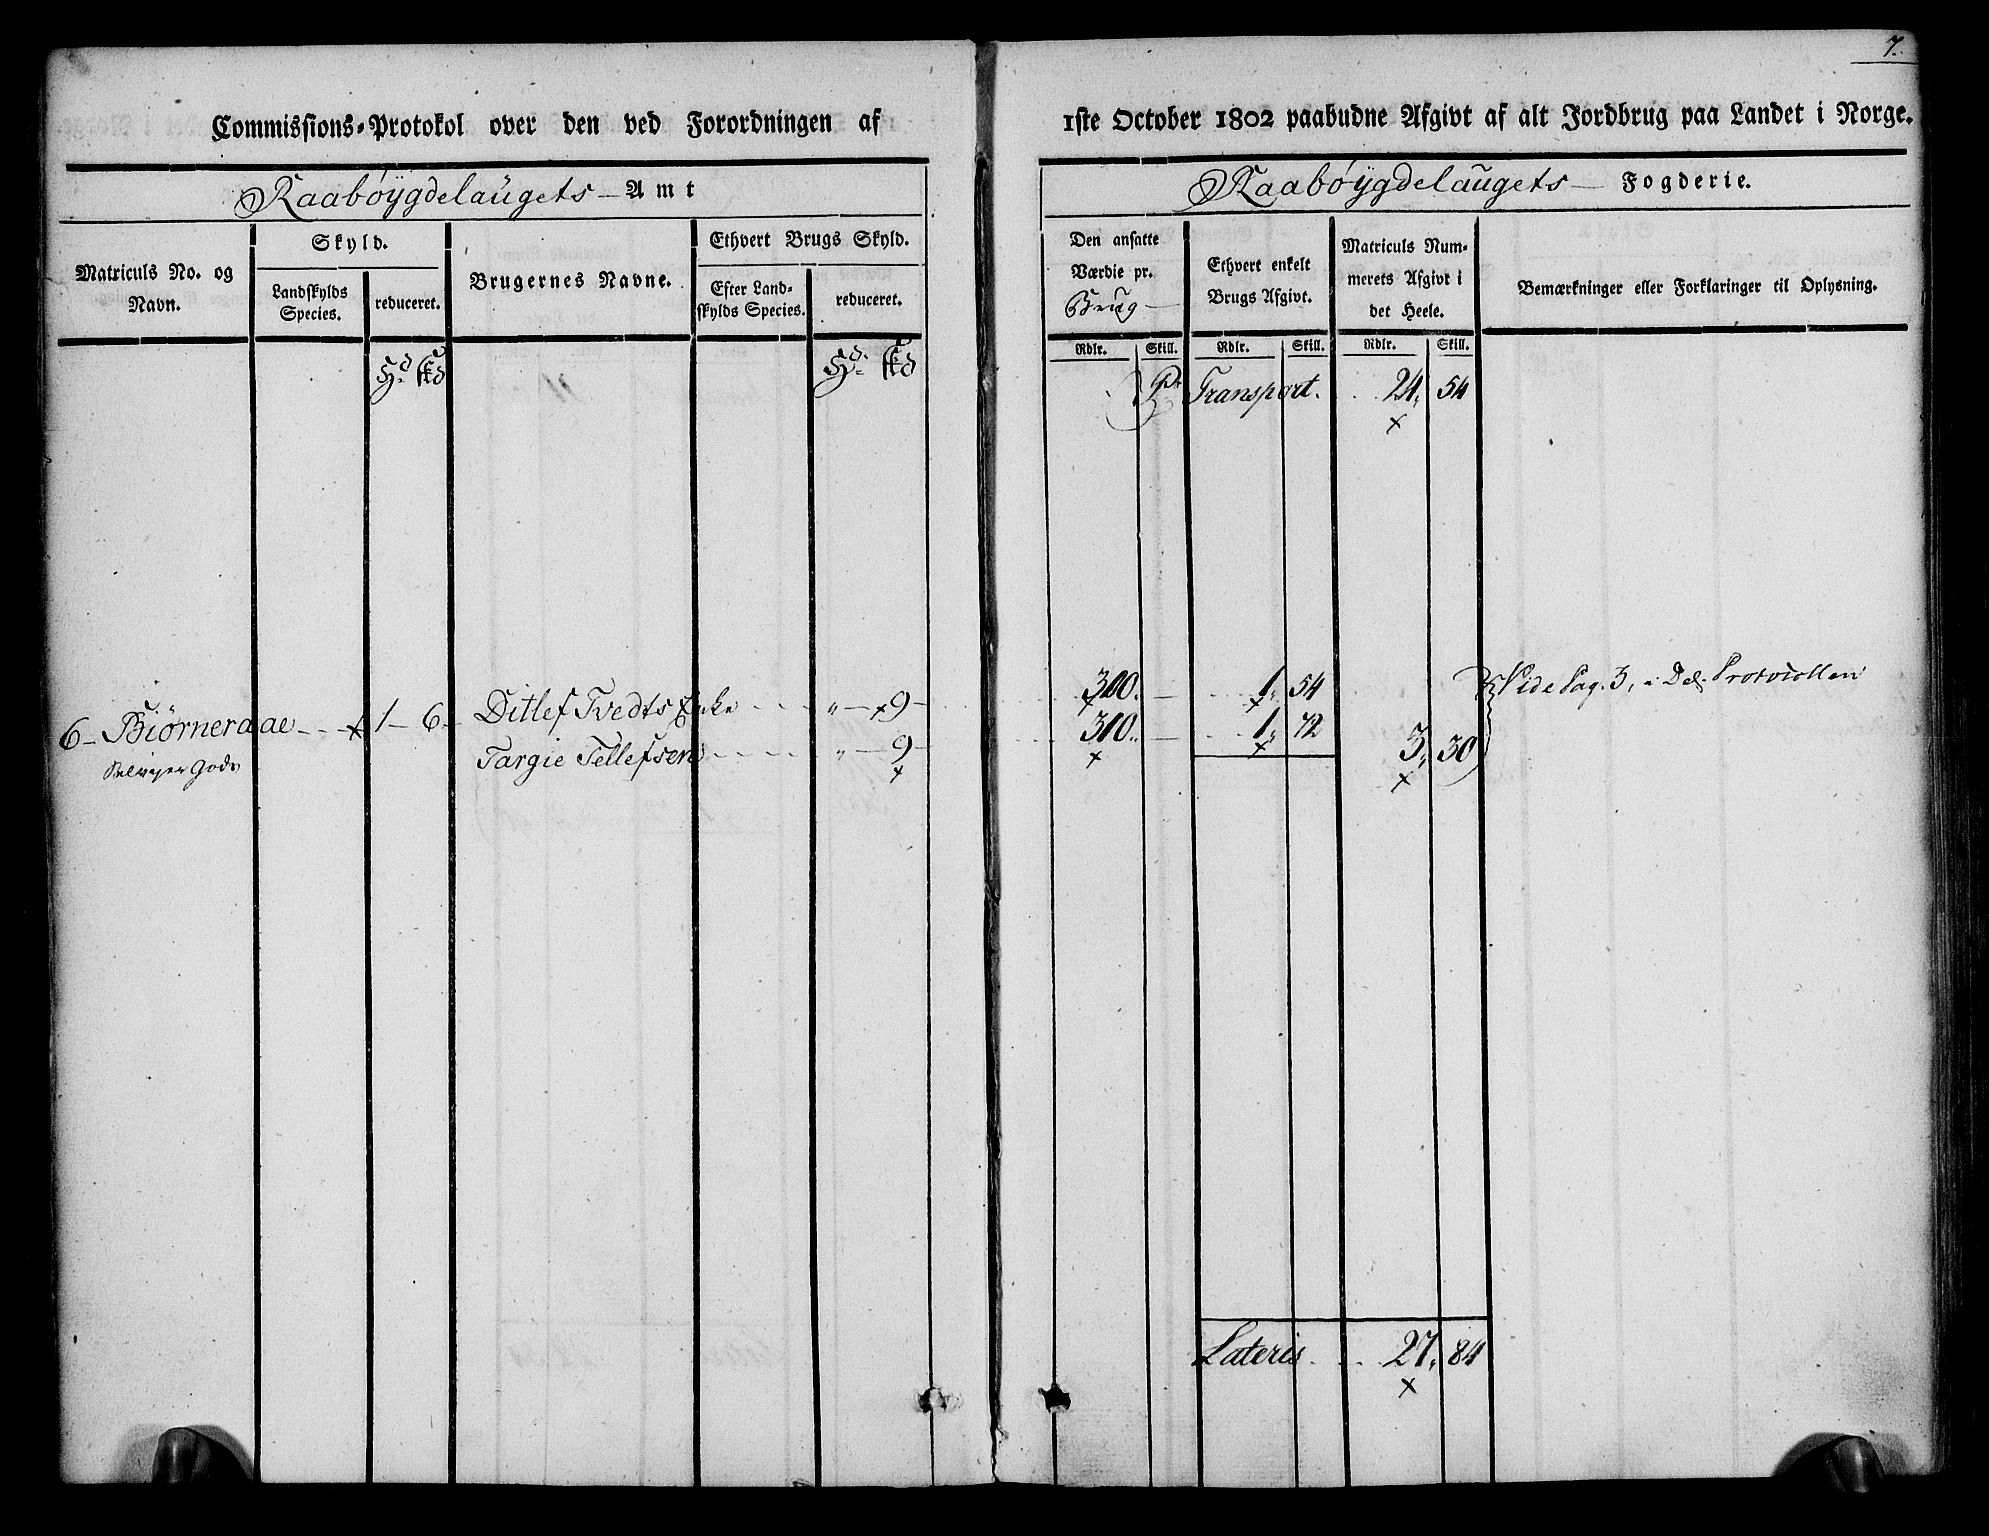 7.
Commissions-Protokol over den ved Forordningen af 1ste October 1802 paabudne Afgivt af alt Jordbrug paa Landet i Norge.
Raabøygdelaugets Amt
Raabøygdelaugets Fogderie.
Matriculs No. og Navn.
Skyld.
Landskylds Species.
reduceret.
Brugernes Navne.
Ethvert Brugs Skyld.
Efter Landskylds Species.
reduceret.
Den ansatte Værdie pr. Brug
Ethvert enkelt Brugs Afgivt.
Matriculs Nummerets Afgivt i det Heele.
Bemærkninger eller Forklaringer til Oplysning.
Rdlr. Skill. Rdlr. Skill. Rdlr. Skill.
Hd. Skd Hd. Skd
Pr Transport. 24, 54
6 Biørneraae 1 6 Ditlef Tvedts Enke " 9 300. 1, 54 Vide Pag. 3, i Del. Protocollen
Selveyer Gods Targie Tellefsen " 9 310. 1, 72 3, 30
Lateris 27, 84